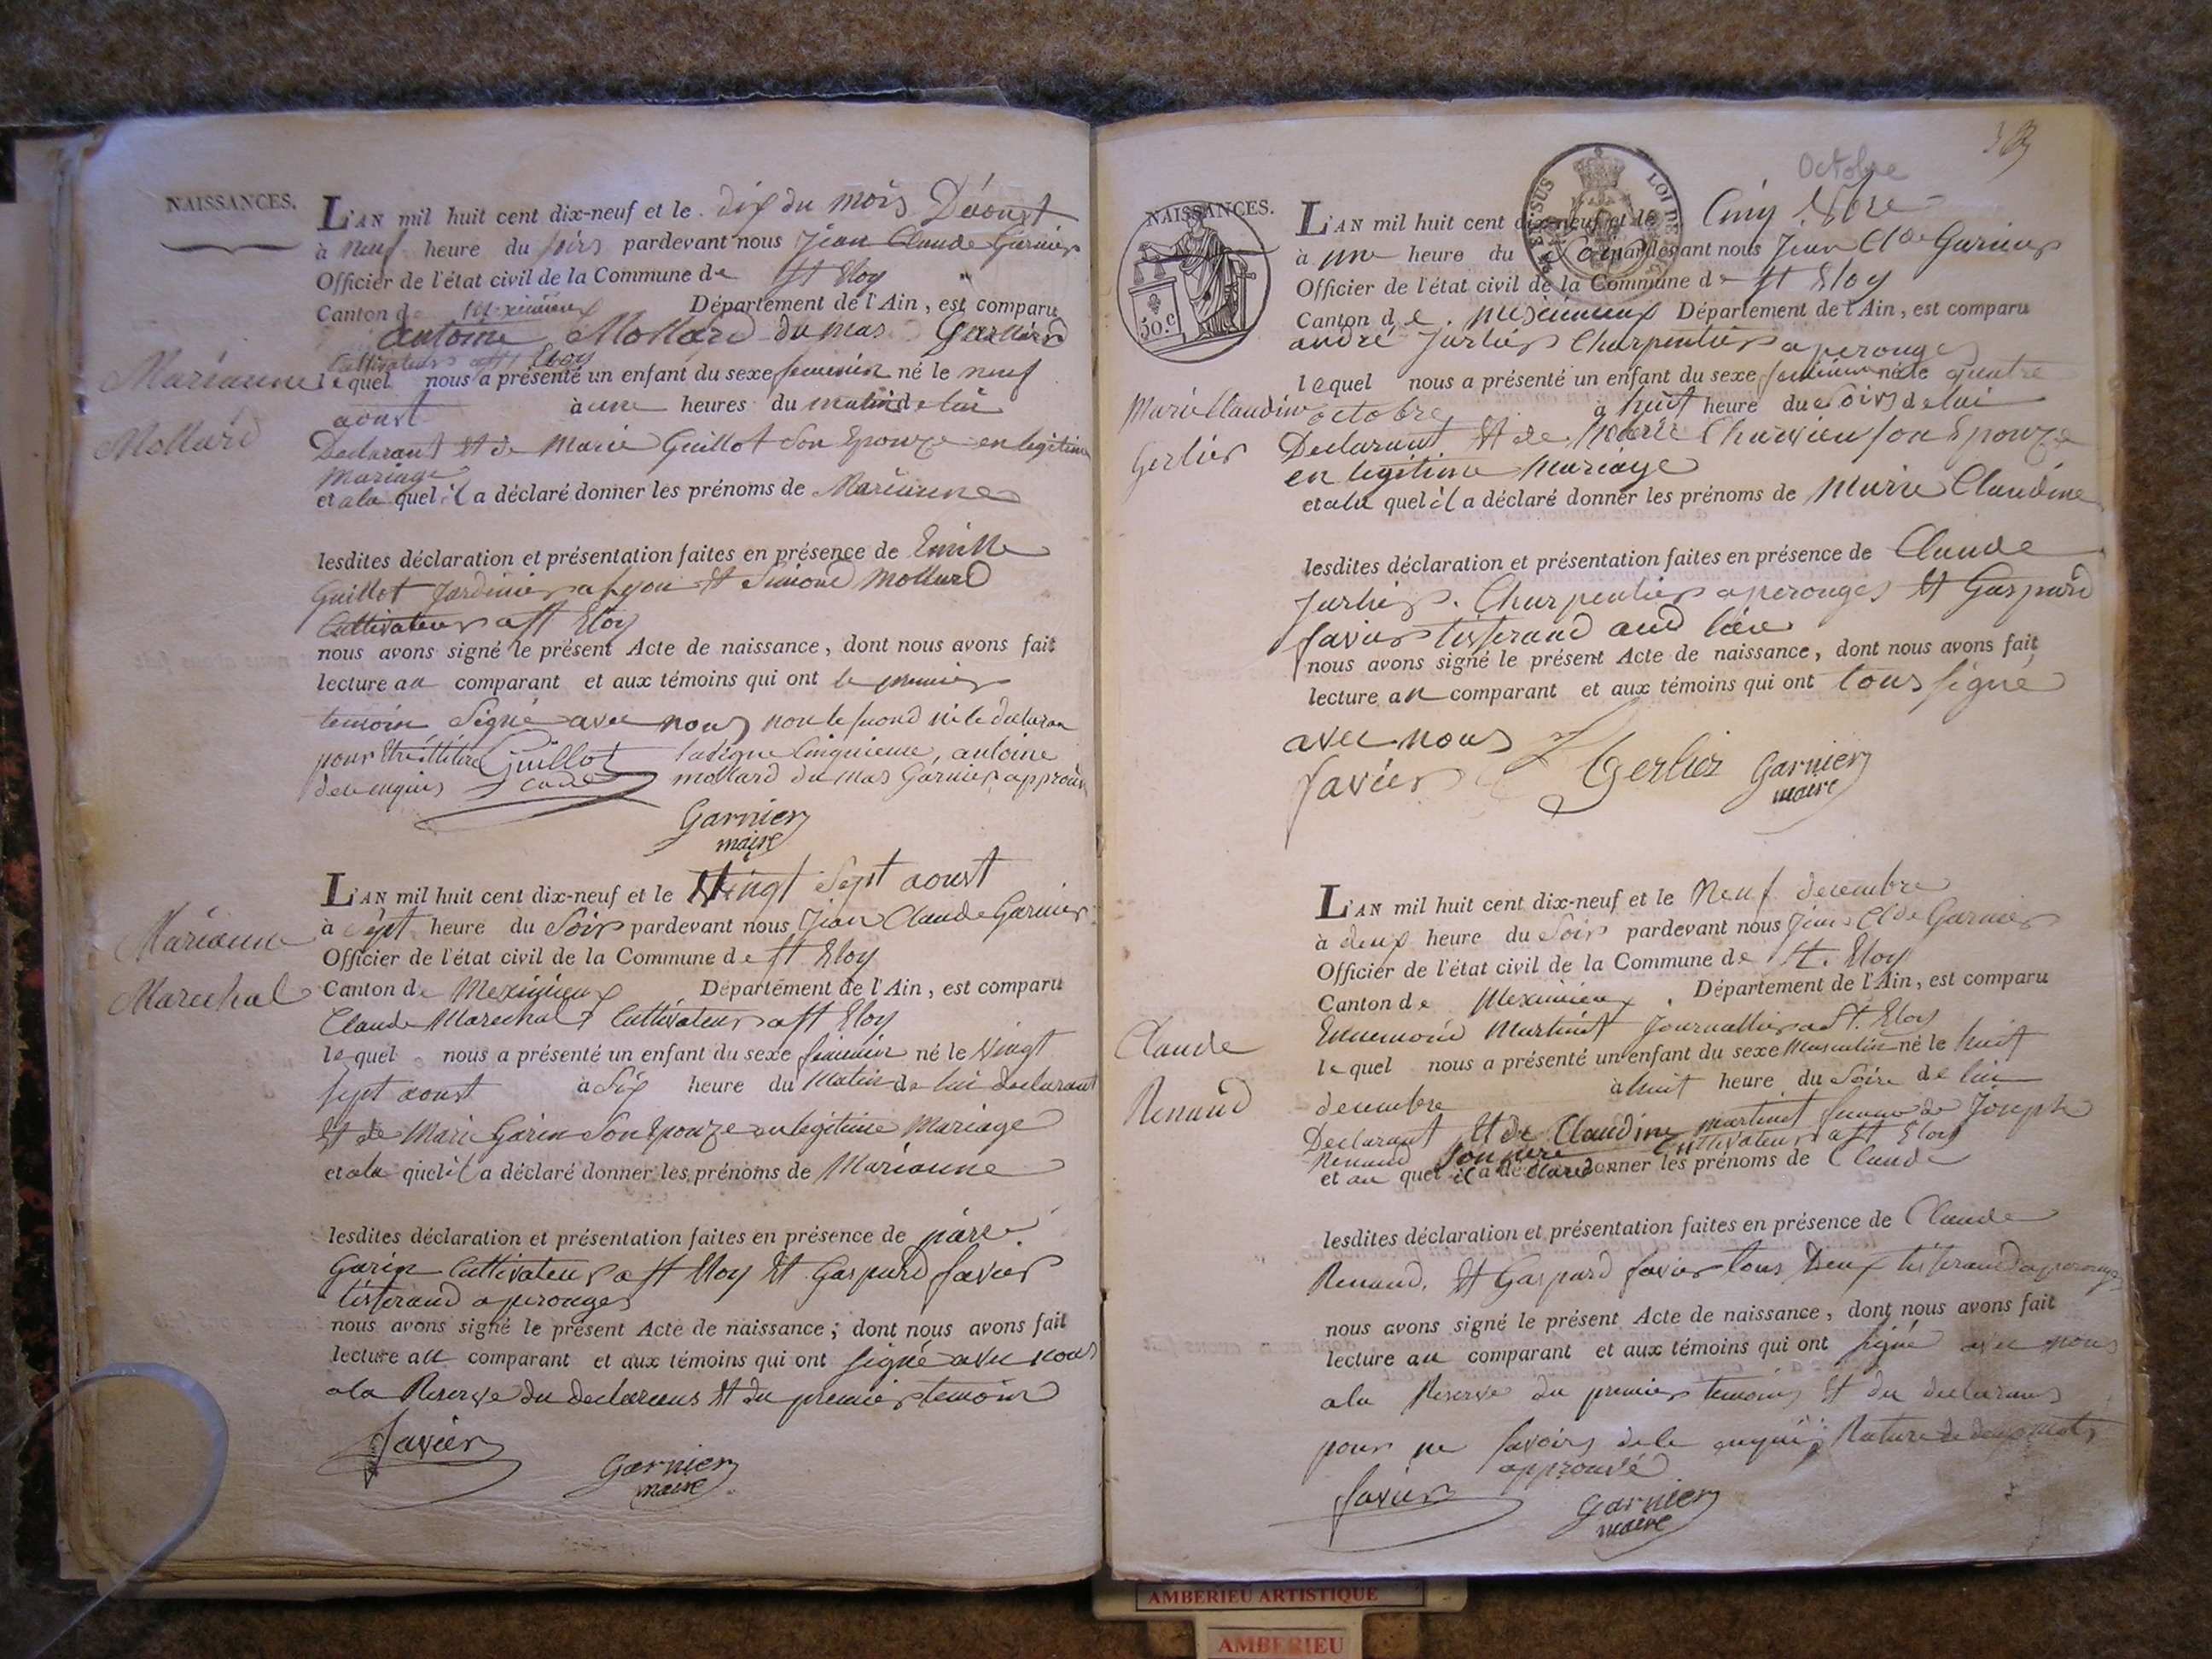 NAISSANCES.
L'AN mil huit cent dix-neuf et le dix du mois Déoust
à neuf heure du soirs pardevant nous Jean Claude Garnier
Officier de l'état civil de la Commune de st Eloy
Canton de Département de l'Ain, est comparu
antoine Mollard du mas
Cultivateur a st Eloy
Marianne
Mollard
lequel nous a présenté un enfant du sexe feminin né le neuf
aoust à une heures du matin de lui
Declarant Et de Marie Guillot Son Epouze en legitime
Mariage
et ala quel il a déclaré donner les prénoms de Marianne
lesdites déclaration et présentation faites en présence de
Guillot Jardinier a Lyon Et Simond Mollard
Cultivateur a st Eloy
nous avons signé le présent Acte de naissance, dont nous avons fait
lecture au comparant et aux témoins qui ont le premier
temoin Signé avec nous non le second ni le declaran
pour Guillot la ligne Cinquieme, antoine
de enquis mollard du mas Garnier, approuv
Garnier
maire
L'AN mil huit cent dix-neuf et le Vingt Sept aoust
à Sept heure du Soir pardevant nous Jean Claude Garnier
Officier de l'état civil de la Commune de st Eloy
Marianne
Marechal
Canton de Meximieux Département de l'Ain, est comparu
Claude Marechal Cultivateur a st Eloy
lequel nous a présenté un enfant du sexe feminin né le Vingt
sept aoust à Six heure du Matin de lui declarant
Et de Marie Garin Son Epouze en legitime Mariage
et ala quel il a déclaré donner les prénoms de Marianne
lesdites déclaration et présentation faites en présence de
Garin Cultivateur a st Eloy Et Gaspard favier
tisserand a perouges
nous avons signé le présent Acte de naissance; dont nous avons fait
lecture au comparant et aux témoins qui ont signé avec nous
ala Reserve du declarans Et du premier temoin
favier
Garnier
maire
Octobre
NAISSANCES.
50.c
L'AN mil huit cent dix-neuf et le Cinq 8bre
à une heure du pardevant nous Jean Cde Garnier
Officier de l'état civil de la Commune de st Eloy
Canton de meximieux Département de l'Ain, est comparu
andré Jerlier Charpentier a perouges
lequel nous a présenté un enfant du sexe feminin né le quatre
Marie Claudine
Gerlier
octobre à huit heure du Soirs de lui
Declarant Et de Marie son Epouze
en legitime Mariage
et ala quel il a déclaré donner les prénoms de Marie Claudine
lesdites déclaration et présentation faites en présence de Claude
Jerlier. Charpentier a perouges Et Gaspard
favier tisserand aud lieu
nous avons signé le présent Acte de naissance, dont nous avons fait
lecture au comparant et aux témoins qui ont tous signé
avec nous
favier Gerlier Garnier
maire
L'AN mil huit cent dix-neuf et le Neuf decembre
à deux heure du Soir pardevant nous Jean Cde Garnier
Officier de l'état civil de la Commune de St. Eloy
Canton de Meximieux. Département de l'Ain, est comparu
Ennemond Martinet Journallier a St. Eloy
Claude
Renaud
lequel nous a présenté un enfant du sexe Masculin né le huit
decembre à huit heure du Soire de lui
Declarant Et de Claudine martinet femme de Joseph
Renaud Son pere Cultivateur a st Eloy
et au quel il a déclaré donner les prénoms de Claude
lesdites déclaration et présentation faites en présence de Claude
Renaud, Et Gaspard favier tous Deux tisserand a perouges
nous avons signé le présent Acte de naissance, dont nous avons fait
lecture au comparant et aux témoins qui ont signé avec nous
ala Reserve du premier temoin Et du declarans
pour ne Savoirs de ce enquis; Rature de deux mots
approuvé
favier
Garnier
maire
AMBERIEU ARTISTIQUE
AMBERIEU